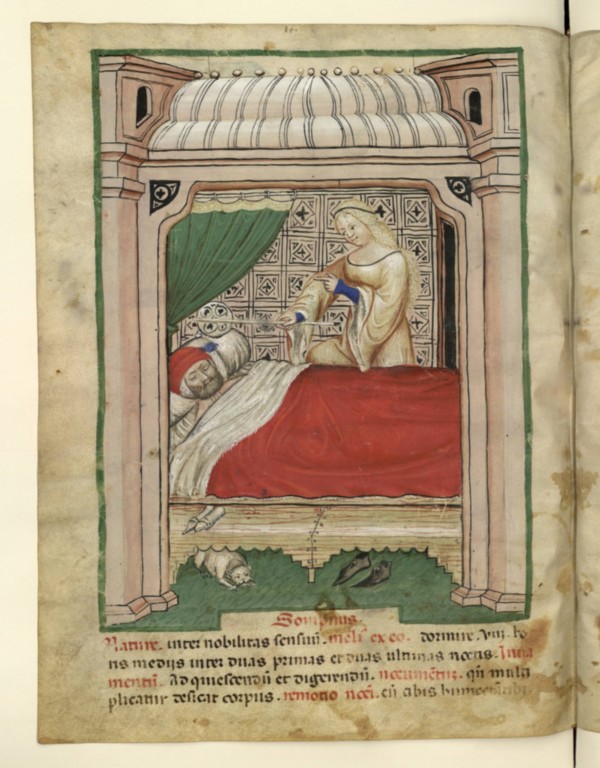 Sompnus.
Nature. inter nobilitas sensuũ. meli' ex eo. dormire. viij. ho
ris medijs inter duas primas et duas ultimas noctis. Iuua
mentũ. ad quiescendũ et digerendũ. nocumentũ. qñ multi
plicatur desicat corpus. remotio noci. cũ cibis humectantibus